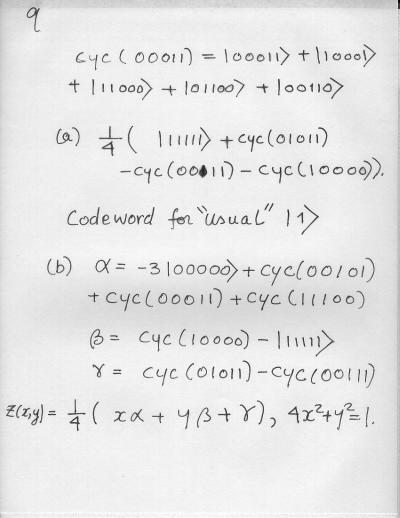 9
cyc(00011) = |00011⟩ + |10001⟩
+ |11000⟩ + |01100⟩ + |00110⟩
(a) 1/4 ( |11111⟩ + cyc(01011)
-cyc(00111) - cyc(10000)).
Codeword for "usual" |1⟩
(b) α = -3|00000⟩ + cyc(00101)
+ cyc(00011) + cyc(11100)
β = cyc(10000) - |11111⟩
γ = cyc(01011) - cyc(00111)
Z(x,y) = 1/4 ( xα + yβ + γ), 4x²+y²=1.